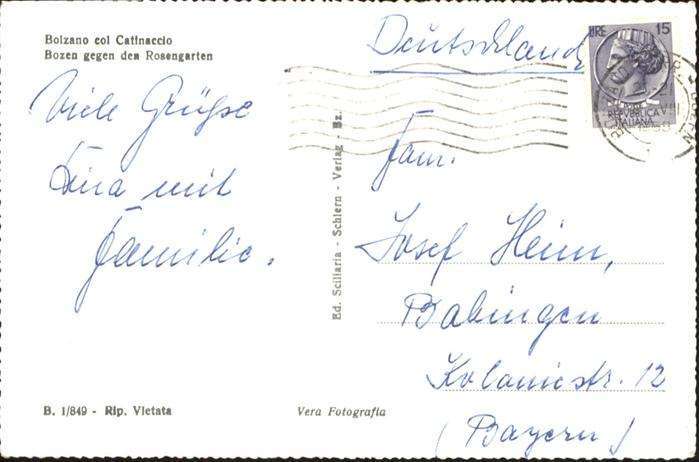 Bolzano col Catinaccio
Bozen gegen den Rosengarten
Viele Grüße
mit
Familie.
Ed. Sciliaria - Schlern - Verlag - Bz.
B. 1/849 - Rip. Vietata
Vera Fotografia
Deutschland
LIRE 15
REPVBBLICA
ITALIANA
Fam.
Josef Heim,
Babingen
Koloniestr. 12
(Bayern)